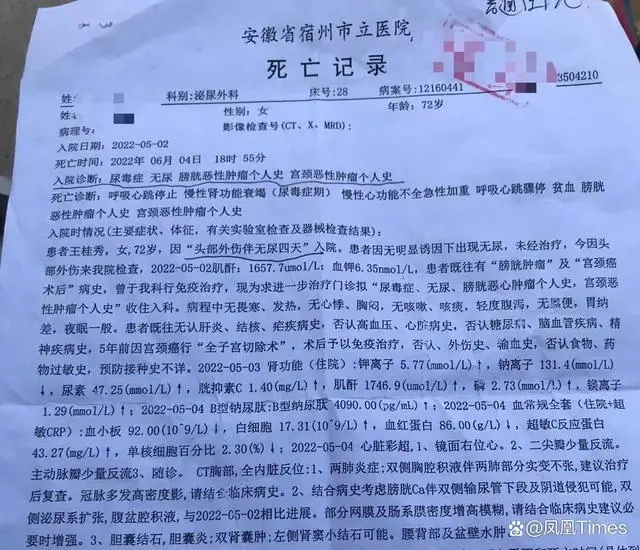 安徽省宿州市立医院
死亡记录
科别:泌尿外科 床号:28 病案号:12160441 3504210
姓名: 性别:女 年龄:72岁
病理号: 影像检查号(CT、X、MRD):
入院日期:2022-05-02
死亡时间:2022年 06月 04日 18时 55分
入院诊断:尿毒症 无尿 膀胱恶性肿瘤个人史 宫颈恶性肿瘤个人史
死亡诊断:呼吸心跳停止 慢性肾功能衰竭(尿毒症期) 慢性心功能不全急性加重 呼吸心跳骤停 贫血 膀胱
恶性肿瘤个人史 宫颈恶性肿瘤个人史
入院时情况(主要症状、体征,有关实验室检查及器械检查结果):
患者王桂秀,女,72岁,因“头部外伤伴无尿四天”入院。患者因无明显诱因下出现无尿,未经治疗,今因头
部外伤来我院检查,2022-05-02肌酐:1657.7umol/L;血钾6.35nmol/L,患者既往有“膀胱肿瘤”及“宫颈癌
术后”病史,曾于我科行免疫治疗,现为求进一步治疗门诊拟“尿毒症、无尿、膀胱恶心肿瘤个人史,宫颈恶
性肿瘤个人史”收住入科。病程中无畏寒、发热,无心悸、胸闷,无咳嗽、咳痰,轻度腹泻,无黑便,胃纳
差,夜眠一般。患者既往无认肝炎、结核、疟疾病史,否认高血压、心脏病史,否认糖尿病、脑血管疾病、精
神疾病史,5年前因宫颈癌行“全子宫切除术”,术后予以免疫治疗,否认、外伤史、输血史,否认食物、药
物过敏史,预防接种史不详。2022-05-03 肾功能(住院):钾离子 5.77(mmol/L)↑,钠离子 131.4(mmol/L)
↓,尿素 47.25(mmol/L)↑,胱抑素C 1.40(mg/L)↑,肌酐 1746.9(umol/L)↑,磷 2.73(mmol/L)↑,镁离子
1.29(mmol/L)↑;2022-05-04 B型钠尿肽:B型钠尿肽 4090.00(pg/mL)↑;2022-05-04 血常规全套(住院+超
敏CRP):血小板 92.00(10^9/L)↓,白细胞 17.31(10^9/L)↑,血红蛋白 86.00(g/L)↓,超敏C反应蛋白
43.27(mg/L)↑,单核细胞百分比 2.30(%)↓;2022-05-04 心脏彩超,1、镜面右位心。2、二尖瓣少量反流。
主动脉瓣少量反流3、随诊。 CT胸部,全内脏反位:1、两肺炎症;双侧胸腔积液伴两肺部分实变不张,建议治疗
后复查。冠脉多发高密度影,请结合临床病史。2、结合病史考虑膀胱Ca伴双侧输尿管下段及阴道侵犯可能,双
侧泌尿系扩张,腹盆腔积液,与2022-05-02相比进展。部分网膜及肠系膜密度增高模糊,请结合临床病史建议必
要时增强。3、胆囊结石,胆囊炎;双肾囊肿;左侧肾窦小结石可能。腰背部及盆壁水肿
@凤凰Times